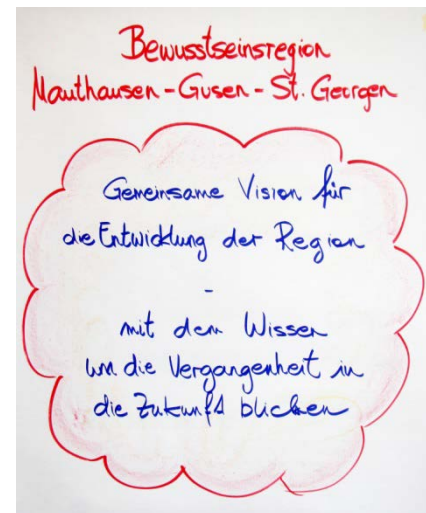 Bewusstseinsregion
Mauthausen - Gusen - St. Georgen
Gemeinsame Vision für
die Entwicklung der Region
-
mit dem Wissen
um die Vergangenheit in
die Zukunft blicken